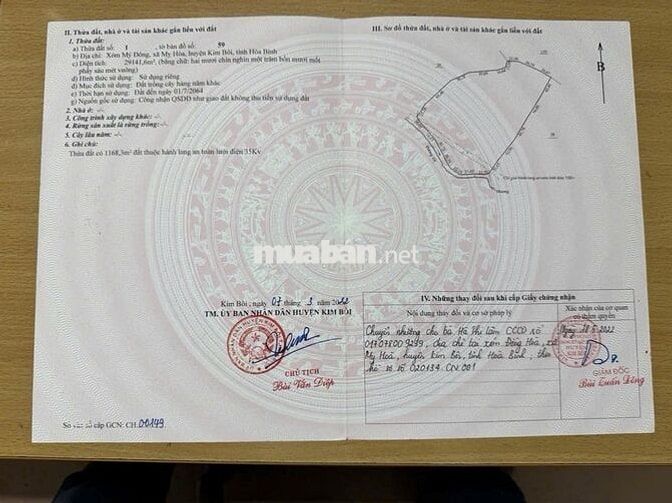 II. Thửa đất, nhà ở và tài sản khác gắn liền với đất
1. Thửa đất:
a) Thửa đất số: 1 , tờ bản đồ số: 59
b) Địa chỉ: Xóm Mỹ Đông, xã Mỵ Hòa, huyện Kim Bôi, tỉnh Hòa Bình
c) Diện tích: 29141,6m² (bằng chữ: hai mươi chín nghìn một trăm bốn mươi mốt
phẩy sáu mét vuông)
d) Hình thức sử dụng: Sử dụng riêng
đ) Mục đích sử dụng: Đất trồng cây hàng năm khác
e) Thời hạn sử dụng: Đất đến ngày 01/7/2064
g) Nguồn gốc sử dụng: Công nhận QSDĐ như giao đất không thu tiền sử dụng đất
2. Nhà ở: -/-
3. Công trình xây dựng khác: -/-
4. Rừng sản xuất là rừng trồng: -/-
5. Cây lâu năm: -/-
6. Ghi chú:
Thửa đất có 1168,3m² đất thuộc hành lang an toàn lưới điện 35Kv
III. Sơ đồ thửa đất, nhà ở và tài sản khác gắn liền với đất
B
muaban.net
Kim Bôi, ngày 07 tháng 3 năm 2022
TM. ỦY BAN NHÂN DÂN HUYỆN KIM BÔI
CHỦ TỊCH
Bùi Văn Diệp
Số vào sổ cấp GCN: CH.00149
IV. Những thay đổi sau khi cấp Giấy chứng nhận
Nội dung thay đổi và cơ sở pháp lý
Xác nhận của cơ quan
có thẩm quyền
Chuyển nhượng cho bà Hà Thị Tâm CCCD số
017078009239, địa chỉ tại xóm Đồng Hoà, xã
Mỵ Hoà, huyện Kim Bôi, tỉnh Hoà Bình, theo
hồ sơ số 020134.CN.001
Ngày 18.5.2022
GIÁM ĐỐC
Bùi Xuân Dũng